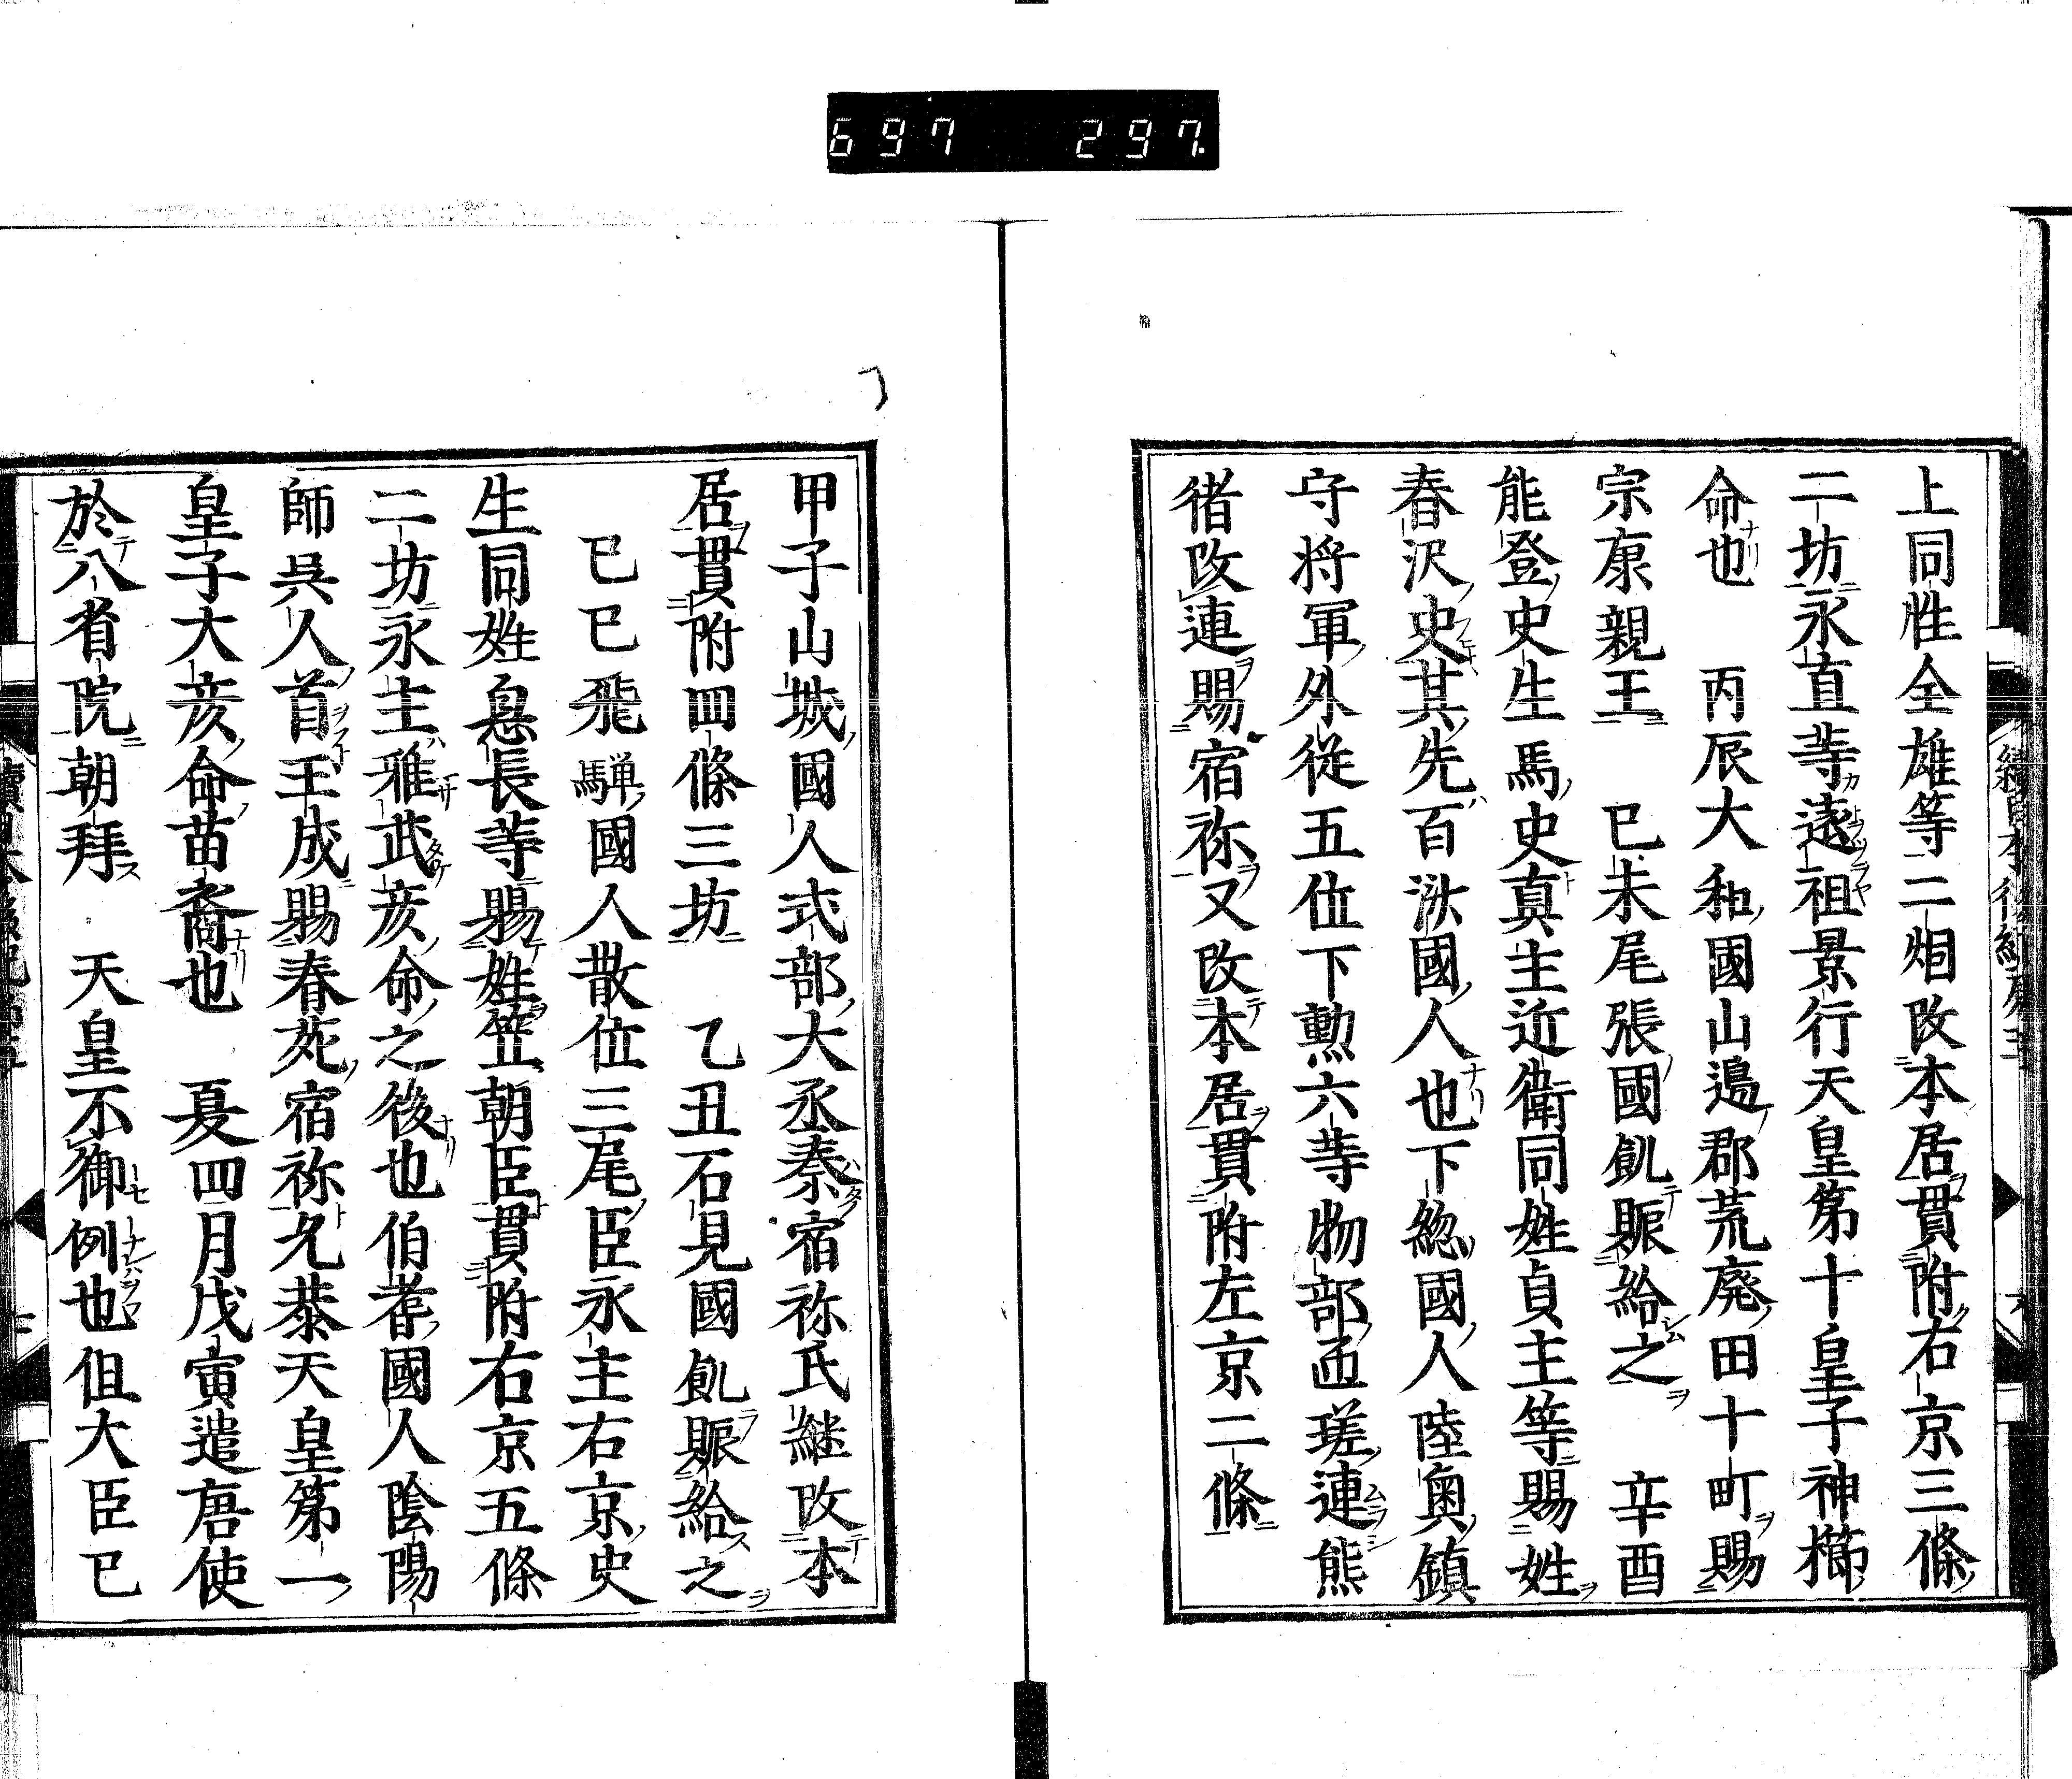 697 297.
上同姓全雄等二烟改本居貫附右京三條
二坊永直等遠祖景行天皇第十皇子神櫛
命也　丙辰大和國山邉郡荒廃田十町賜
宗康親王　己未尾張國飢賑給之　辛酉
能登史生馬史真主近衛同姓貞主等賜姓
春沢史其先百済國人也下総國人陸奥鎮
守将軍外從五位下勲六等物部匝瑳連熊
猪改連賜宿祢又改本居貫附左京二條
甲子山城國人式部大丞秦宿祢氏継改本
居貫附四條三坊　乙丑石見國飢賑給之
己巳飛騨國人散位三尾臣永主右京史
生同姓息長等賜姓笠朝臣貫附右京五條
二坊永主稚武彦命之後也伯耆國人陰陽
師呉人首王成賜春苑宿祢允恭天皇第一
皇子大彦命苗裔也　夏四月戊寅遣唐使
於八省院朝拜　天皇不御例也但大臣已